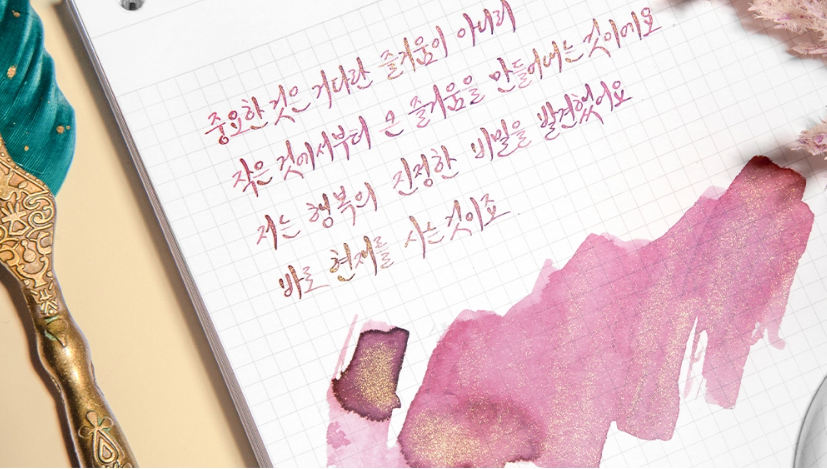 중요한 것은 커다란 즐거움이 아니라
작은 것에서부터 큰 즐거움을 만들어내는 것이에요
저는 행복의 진정한 비밀을 발견했어요
바로 현재를 사는 것이죠